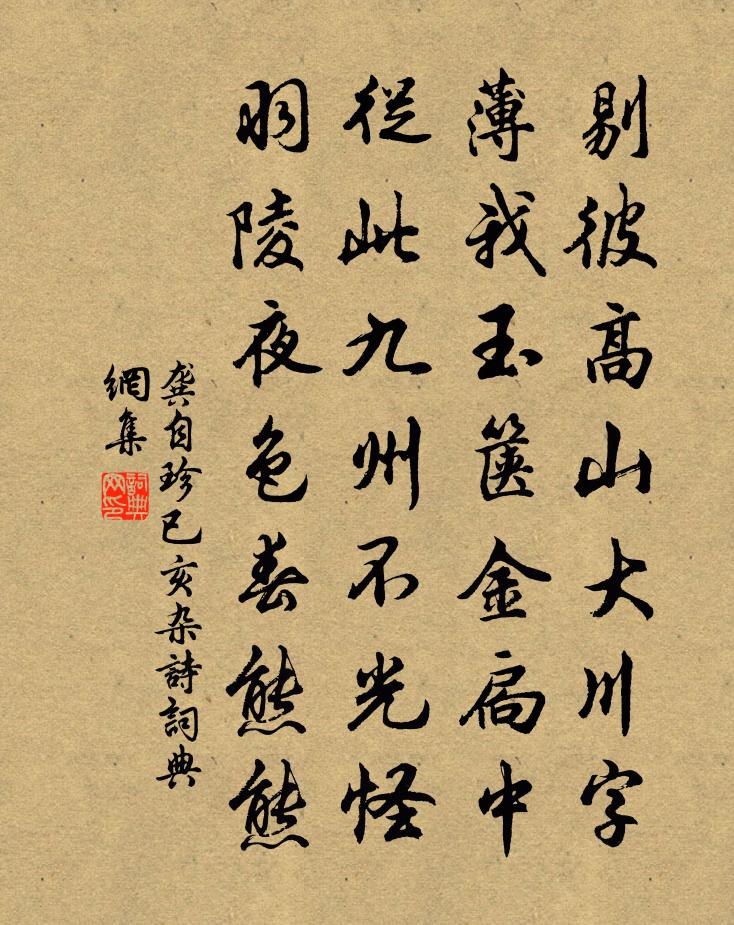 剔彼高山大川字
薄我玉篋金扃中
從此九州不光怪
羽陵夜色春熊熊
龔自珍己亥杂詩詞典
網集
詞典
网印